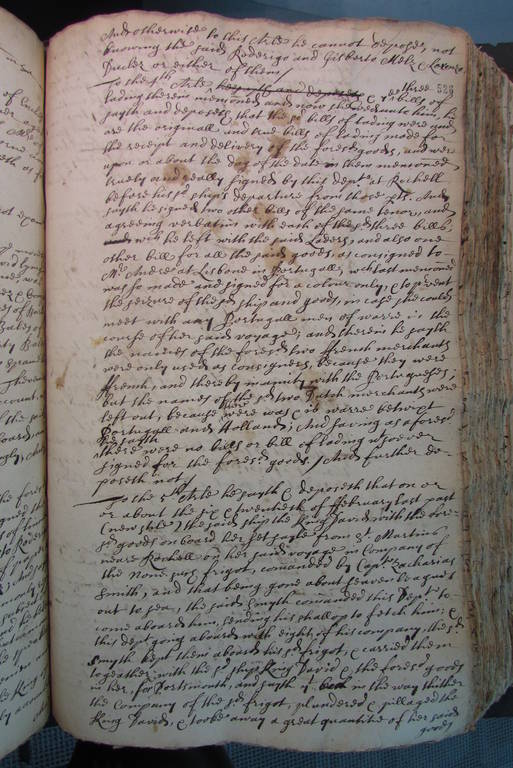 And otherwise to this Arle he cannot depose, not
knowing the said Roderigo and Gilberto Melz Lorenzo
Duclez or either of them /
To the 4th Arle he sayth and deposeth three 528
lading therein menconed and now shewed unto him, he
sayth and deposeth that the sd bills of lading were and
are the originall and true bills of lading made for
the receipt and delivery of the foresd goods, and were
upon or about the day of the date in them menconed
truely and really signed by this dept at Rochell
before his sd ships departure from those pts. And
sayth he signed two other bills of the same tenor, and
agreeing verbatim with each of the sd three bills
wch he left with the said Laders, and also one
other bill for all the said goods, as consigned to
Mr Andreo at Lisbone in Portugall, wch last menconed
was so made and signed for a colour only, to prevent
the seizure of the sd ship and goods, in case she could
meet with any Portugall men of warre in the
course of her said voyage; and therein he sayth
the names of the foresd two ffrench merchants
were only used as consigners, because they were
ffrench, and thereby in amity with the Portugueses;
but the names of the sd two Dutch merchants were
left out, because there was warre betwixt
Portugall and Holland; And saving as aforesd
hee sayth
there were no bills or bill of lading whsoever
signed for the foresd goods. / And further de-
poseth not /
To the 5th Arle he sayth & deposeth that on or
or about the six & twentieth of ffebruary last past
(new stile) the said ship the King David with the fore-
sd goods on board her set sayle from St Martins
neare Rochell on her said voyage in Company of
the None such frigot, comanded by Captn Zacharias
Smith, and that being gone about seaven leagues
out to sea, the said Smyth comanded this Dept to
come aboard him, sending his shallop to fetch him; &
this dept going aboard with eight of his company, the sd
Smyth kept them aboard his sd frigot, & carried them
togeather with the sd ship King David & the foresd goods
in her, for Portsmouth, and sayth yt in the way thither
the Company of the sd frigot, plundered & pillaged the
King David, & tooke away a great quantitie of her said
goods